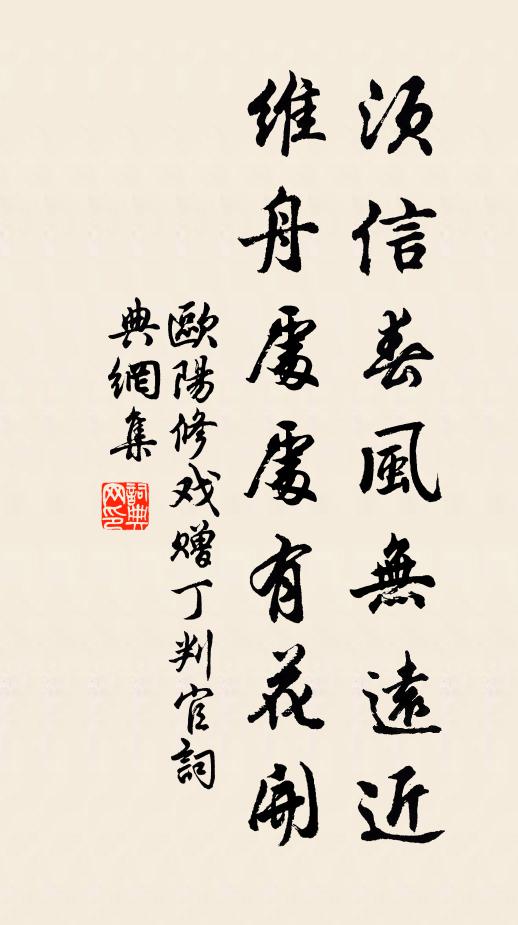 須信春風無遠近
維舟處處有花開
歐陽修戏贈丁判官詞
典網集
詞典
网印